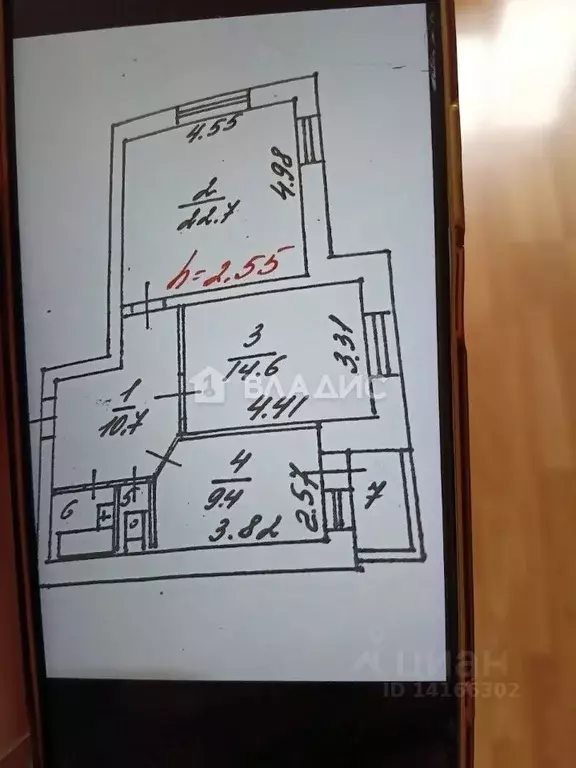 4.55
4.98
2
22.7
h=2.55
3
14.6
3.31
4.41
ВЛАДИС
1
10.7
4
9.4
2.57
3.82
7
6
5
циан
ID 14166302